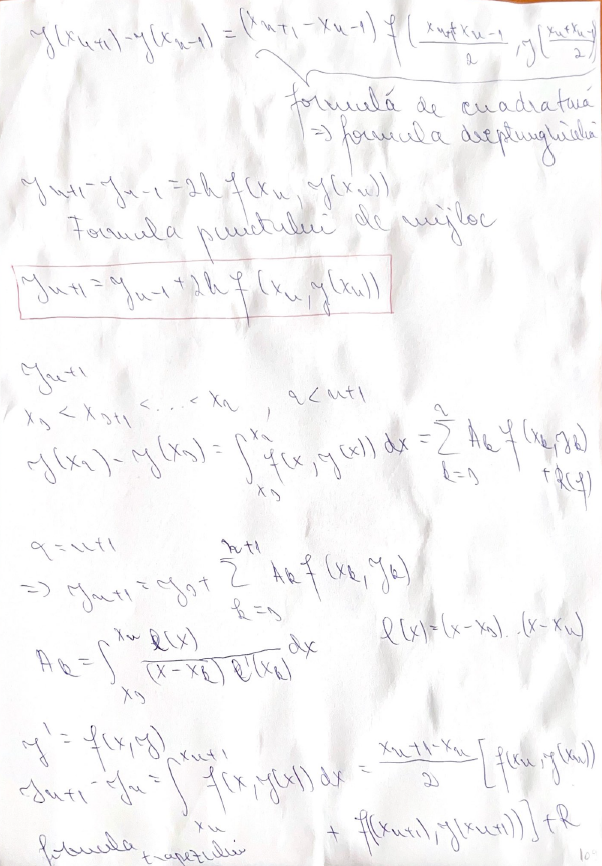 y(xₙ₊₁)-y(xₙ₋₁) = (xₙ₊₁-xₙ₋₁) f((xₙ+xₙ₋₁)/2, y((xₙ+xₙ₋₁)/2)
formulă de cuadratură
=> formula dreptunghiului
yₙ₊₁-yₙ₋₁ = 2h f(xₙ, y(xₙ))
Formula punctului de mijloc
yₙ₊₁ = yₙ₋₁ + 2h f(xₙ, y(xₙ))
yₙ₊₁
xₛ < xₛ₊₁ < .... < xᵣ , r < n+1
y(xᵣ) - y(xₛ) = ∫_{xₛ}^{xᵣ} f(x, y(x)) dx = Σ_{k=s}^{r} Aₖ f(xₖ, yₖ)
+ R(f)
r = n+1
=> yₙ₊₁ = yₛ + Σ_{k=s}^{n+1} Aₖ f(xₖ, yₖ)
Aₖ = ∫_{xₛ}^{xₙ} l(x)/((x-xₖ) l'(xₖ)) dx
l(x) = (x-xₛ)...(x-xₙ)
y' = f(x, y)
yₙ₊₁ - yₙ = ∫_{xₙ}^{xₙ₊₁} f(x, y(x)) dx = (xₙ₊₁-xₙ)/2 [f(xₙ, y(xₙ))
+ f(xₙ₊₁), y(xₙ₊₁))] + R
formula trapezului